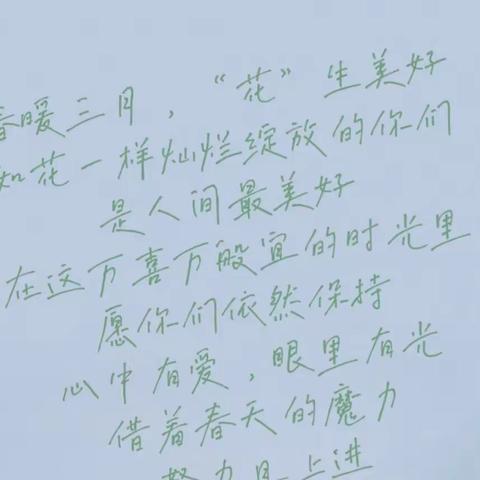 春暖三月，“花”生美好
如花一样灿烂绽放的你们
是人间最美好
在这万喜万般宜的时光里
愿你们依然保持
心中有爱，眼里有光
借着春天的魔力
努力且上进